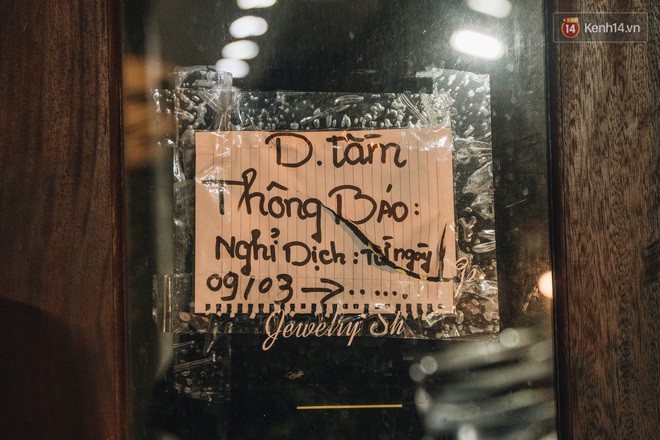 14 Kenh14.vn
D. tâm
Thông BÁO:
Nghỉ Dịch: Từ ngày
09/03 → ......
Jewelry Sh